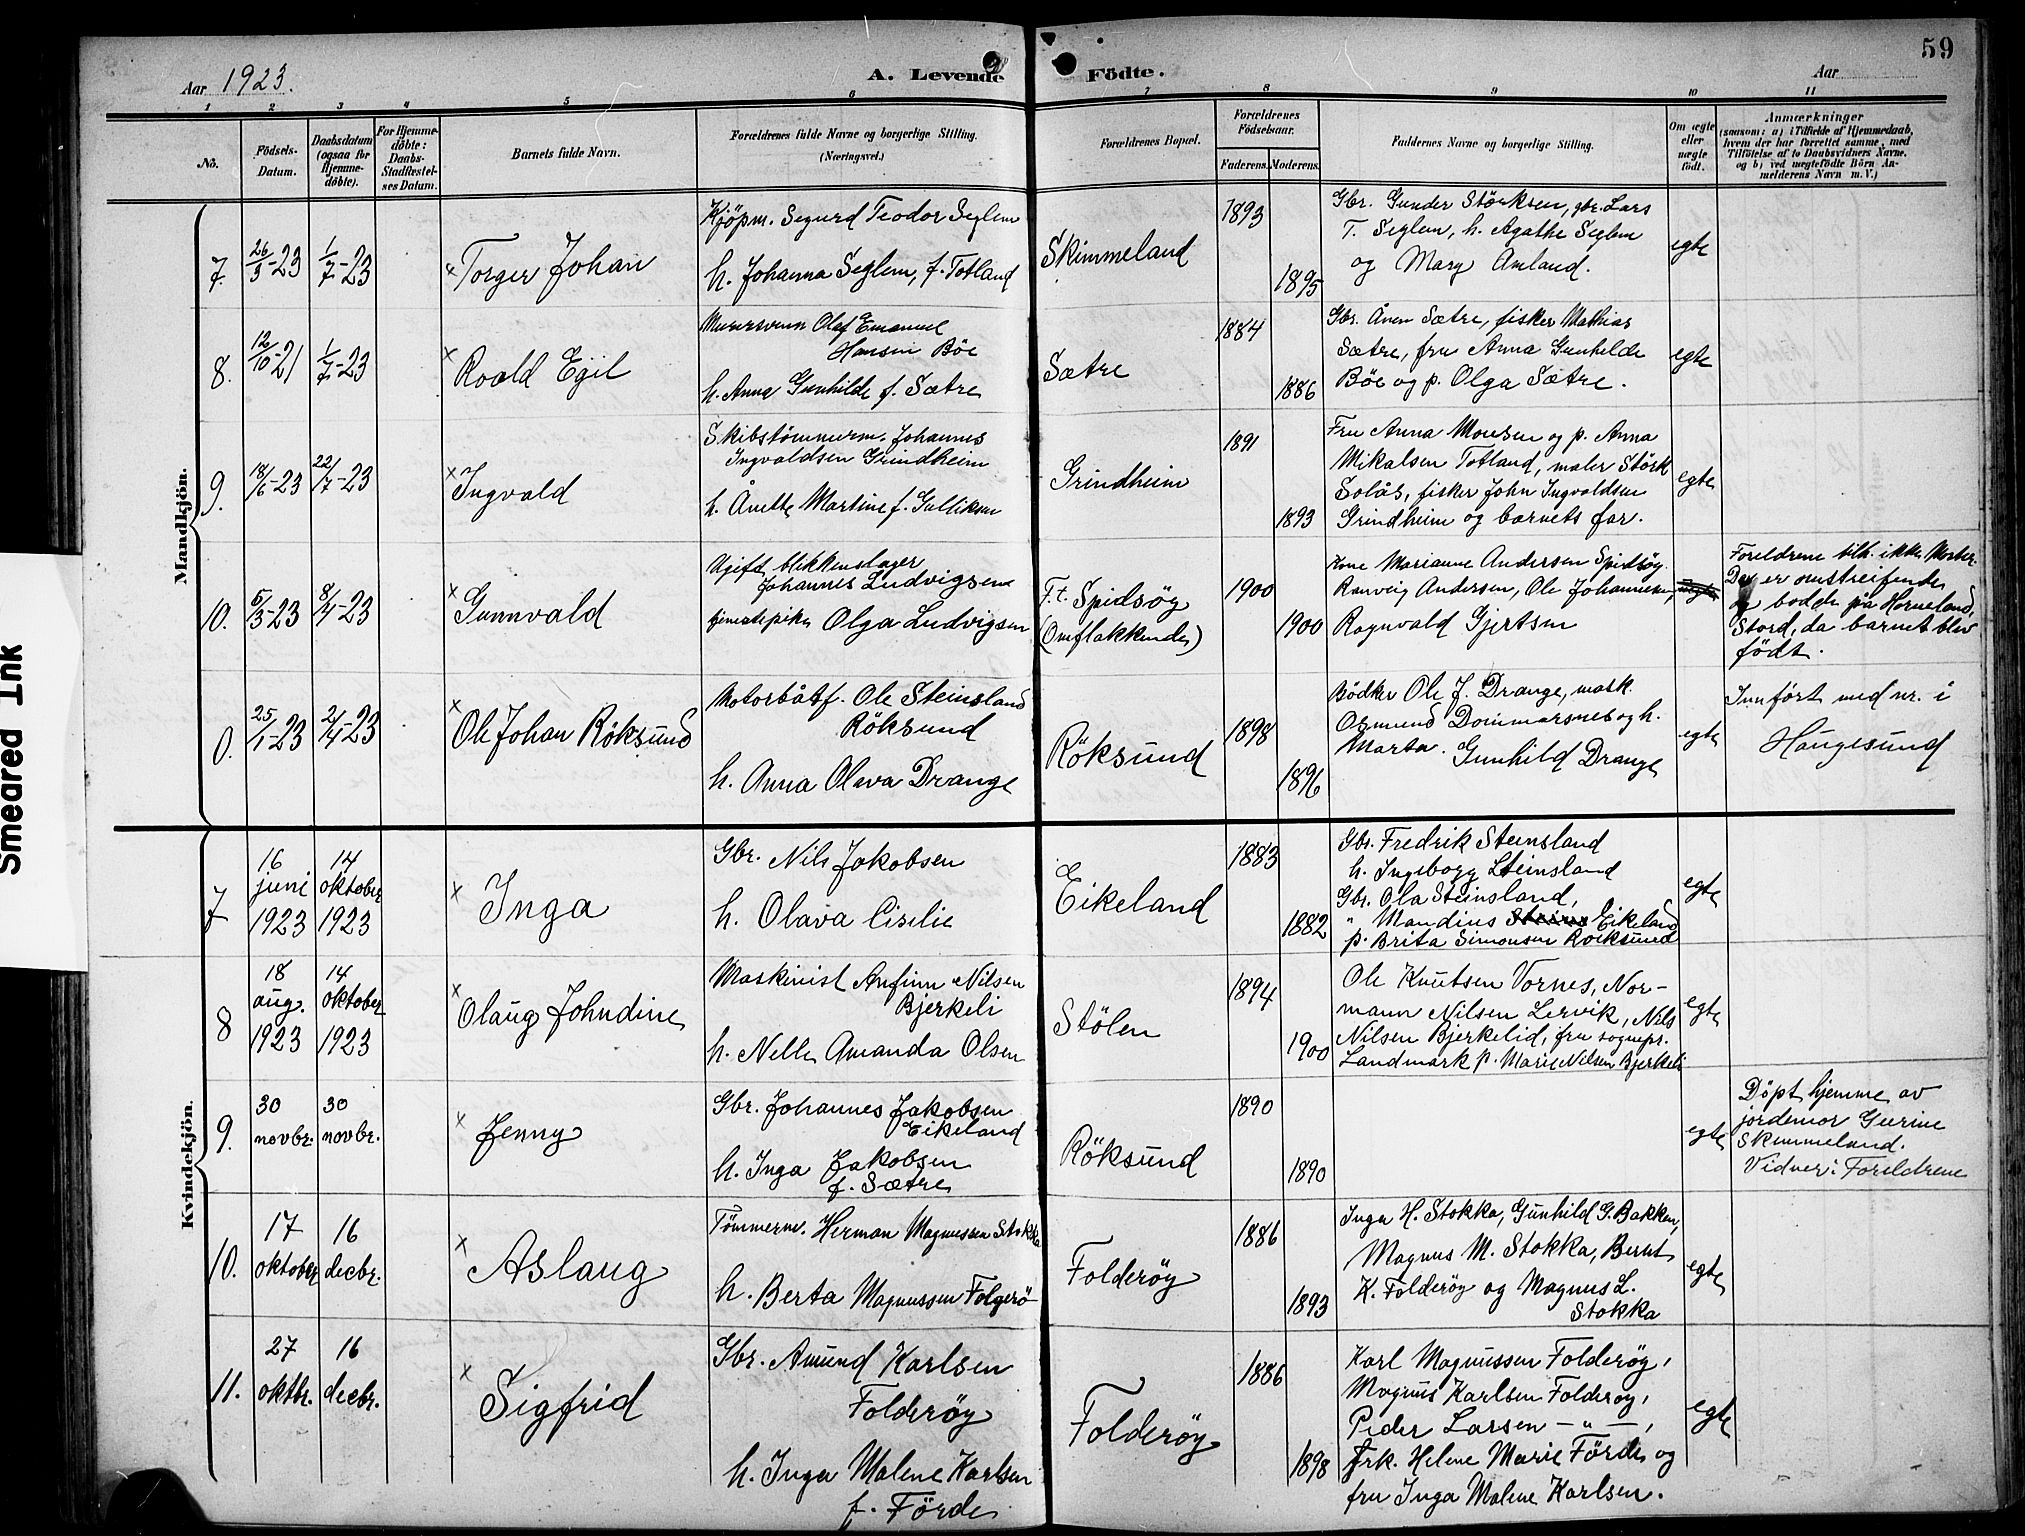 59
Aar 1923.
A. Levende Födte.
Aar
1 2 3 4 5 6 7 8 9 10 11
No.
Födsels-
Datum.
Daabsdatum
(ogsaa for
Hjemme-
døbte).
For Hjemme-
døbte:
Daabs-
Stadfæstel-
ses Datum.
Barnets fulde Navn.
Forældrenes fulde Navne og borgerlige Stilling.
(Næringsvei.)
Forældrenes Bopæl.
Forældrenes
Födselsaar.
Faderens. Moderens.
Faddernes Navne og borgerlige Stilling.
Om ægte
eller
uægte
født.
Anmærkninger
(saasom: a) i Tilfælde af Hjemmedaab,
hvem der har forrettet samme, med
Tilföielse af to Daabsvidners Navne,
og b) ved uægtefödte Börn An-
melderens Navn m. V.)
Mandkjön.
7. 26/5-23 1/7-23 × Torger Johan
Kjöpm. Sigurd Teodor Seglem
h. Johanna Seglem, f. Totland
Skimmeland
1893
1895
Gbr. Gunder Störksen, gbr. Lars
T. Seglem, h. Agathe Seglem
og Mary Amland.
egte
8. 12/10-21 1/7-23 × Roald Egil
Murersvenn Olaf Emanuel
Hansen Böe
h. Anna Gunhilde f. Sætre
Sætre
1884
1886
Gbr. Ånen Sætre, fisker Mathias
Sætre, fru Anna Gunhilde
Böe og p. Olga Sætre.
egte
9. 18/6-23 22/7-23 × Ingvald
Skibstömmerm. Johannes
Ingvaldsen Grindheim
h. Ånette Martine f. Gulliksen
Grindheim
1891
1893
Fru Anna Monsen og p. Anna
Mikalsen Totland, maler Störk
Solås, fisker John Ingvaldsen
Grindheim og barnets far.
egte
10. 5/3-23 8/4-23 × Gunnvald
Ugift blikkenslager
Johannes Ludvigsen
tjenestepike Olga Ludvigsen
F.t. Spidsöy
(Omflakkende)
1900
1900
Kone Marianne Andersen Spidsöy
Ranveig Andersen, Ole Johannesen,
Ragnvald Gjertsen
Foreldrene tilh. ikke Moster
De er omstreifende
og bodde på Horneland,
Stord, da barnet blev
födt.
0. 25/1-23 2/4-23 × Ole Johan Röksund
Motorbåtf. Ole Steinsland
Röksund
h. Anna Olava Drange
Röksund
1898
1896
Bödker Ole J. Drange, mask.
Osmund Dommarsnes og h.
Marta. Gunhild Drange
egte
Innfört med nr. i
Haugesund
Kvindekjön.
7 16 juni 1923 14 oktober 1923 × Inga
Gbr. Nils Jakobsen
h. Olava Cisilie
Eikeland
1883
1882
Gbr. Fredrik Steinsland
h. Ingeborg Steinsland
Gbr. Ola Steinsland,
" Mandius Eikeland
p. Brita Simonsen Roeksund
egte
8 18 aug. 1923 14 oktober 1923 × Olaug Johndine
Maskinist Anfinn Nilsen
Bjerkeli
h. Nelly Amanda Olsen
Stölen
1894
1900
Ole Knutsen Vornes, Nor-
mann Nilsen Lervik, Nils
Nilsen Bjerkelid, fru sognepr.
Landmark p. Marie Nilsen Bjerkeli
egte
9. 30 novbr. 30 novbr. × Jenny
Gbr. Johannes Jakobsen
Eikeland
h. Inga Jakobsen
f. Sætre
Röksund
1890
1890
egte
Döpt hjemme av
jordemor Gurine
Skimmeland.
Vidner: Foreldrene
10. 17 oktober 16 decbr. × Aslaug
Tömmerm. Herman Magnussen Stokka
h. Berta Magnussen Folgerö
Folderöy
1886
1893
Inga H. Stokka, Gunhild G. Bakken,
Magnus M. Stokka, Bernt
K. Folderöy og Magnus L.
Stokka
egte
11. 27 oktbr. 16 decbr. × Sigfrid
Gbr. Amund Karlsen
Folderöy
h. Inga Malene Karlsen
f. Förde
Folderöy
1886
1898
Karl Magnussen Folderöy,
Magnus Karlsen Folderöy,
Peder Larsen — " —,
Frk. Helene Marie Förde og
fru Inga Malene Karlsen.
egte
Smeared Ink